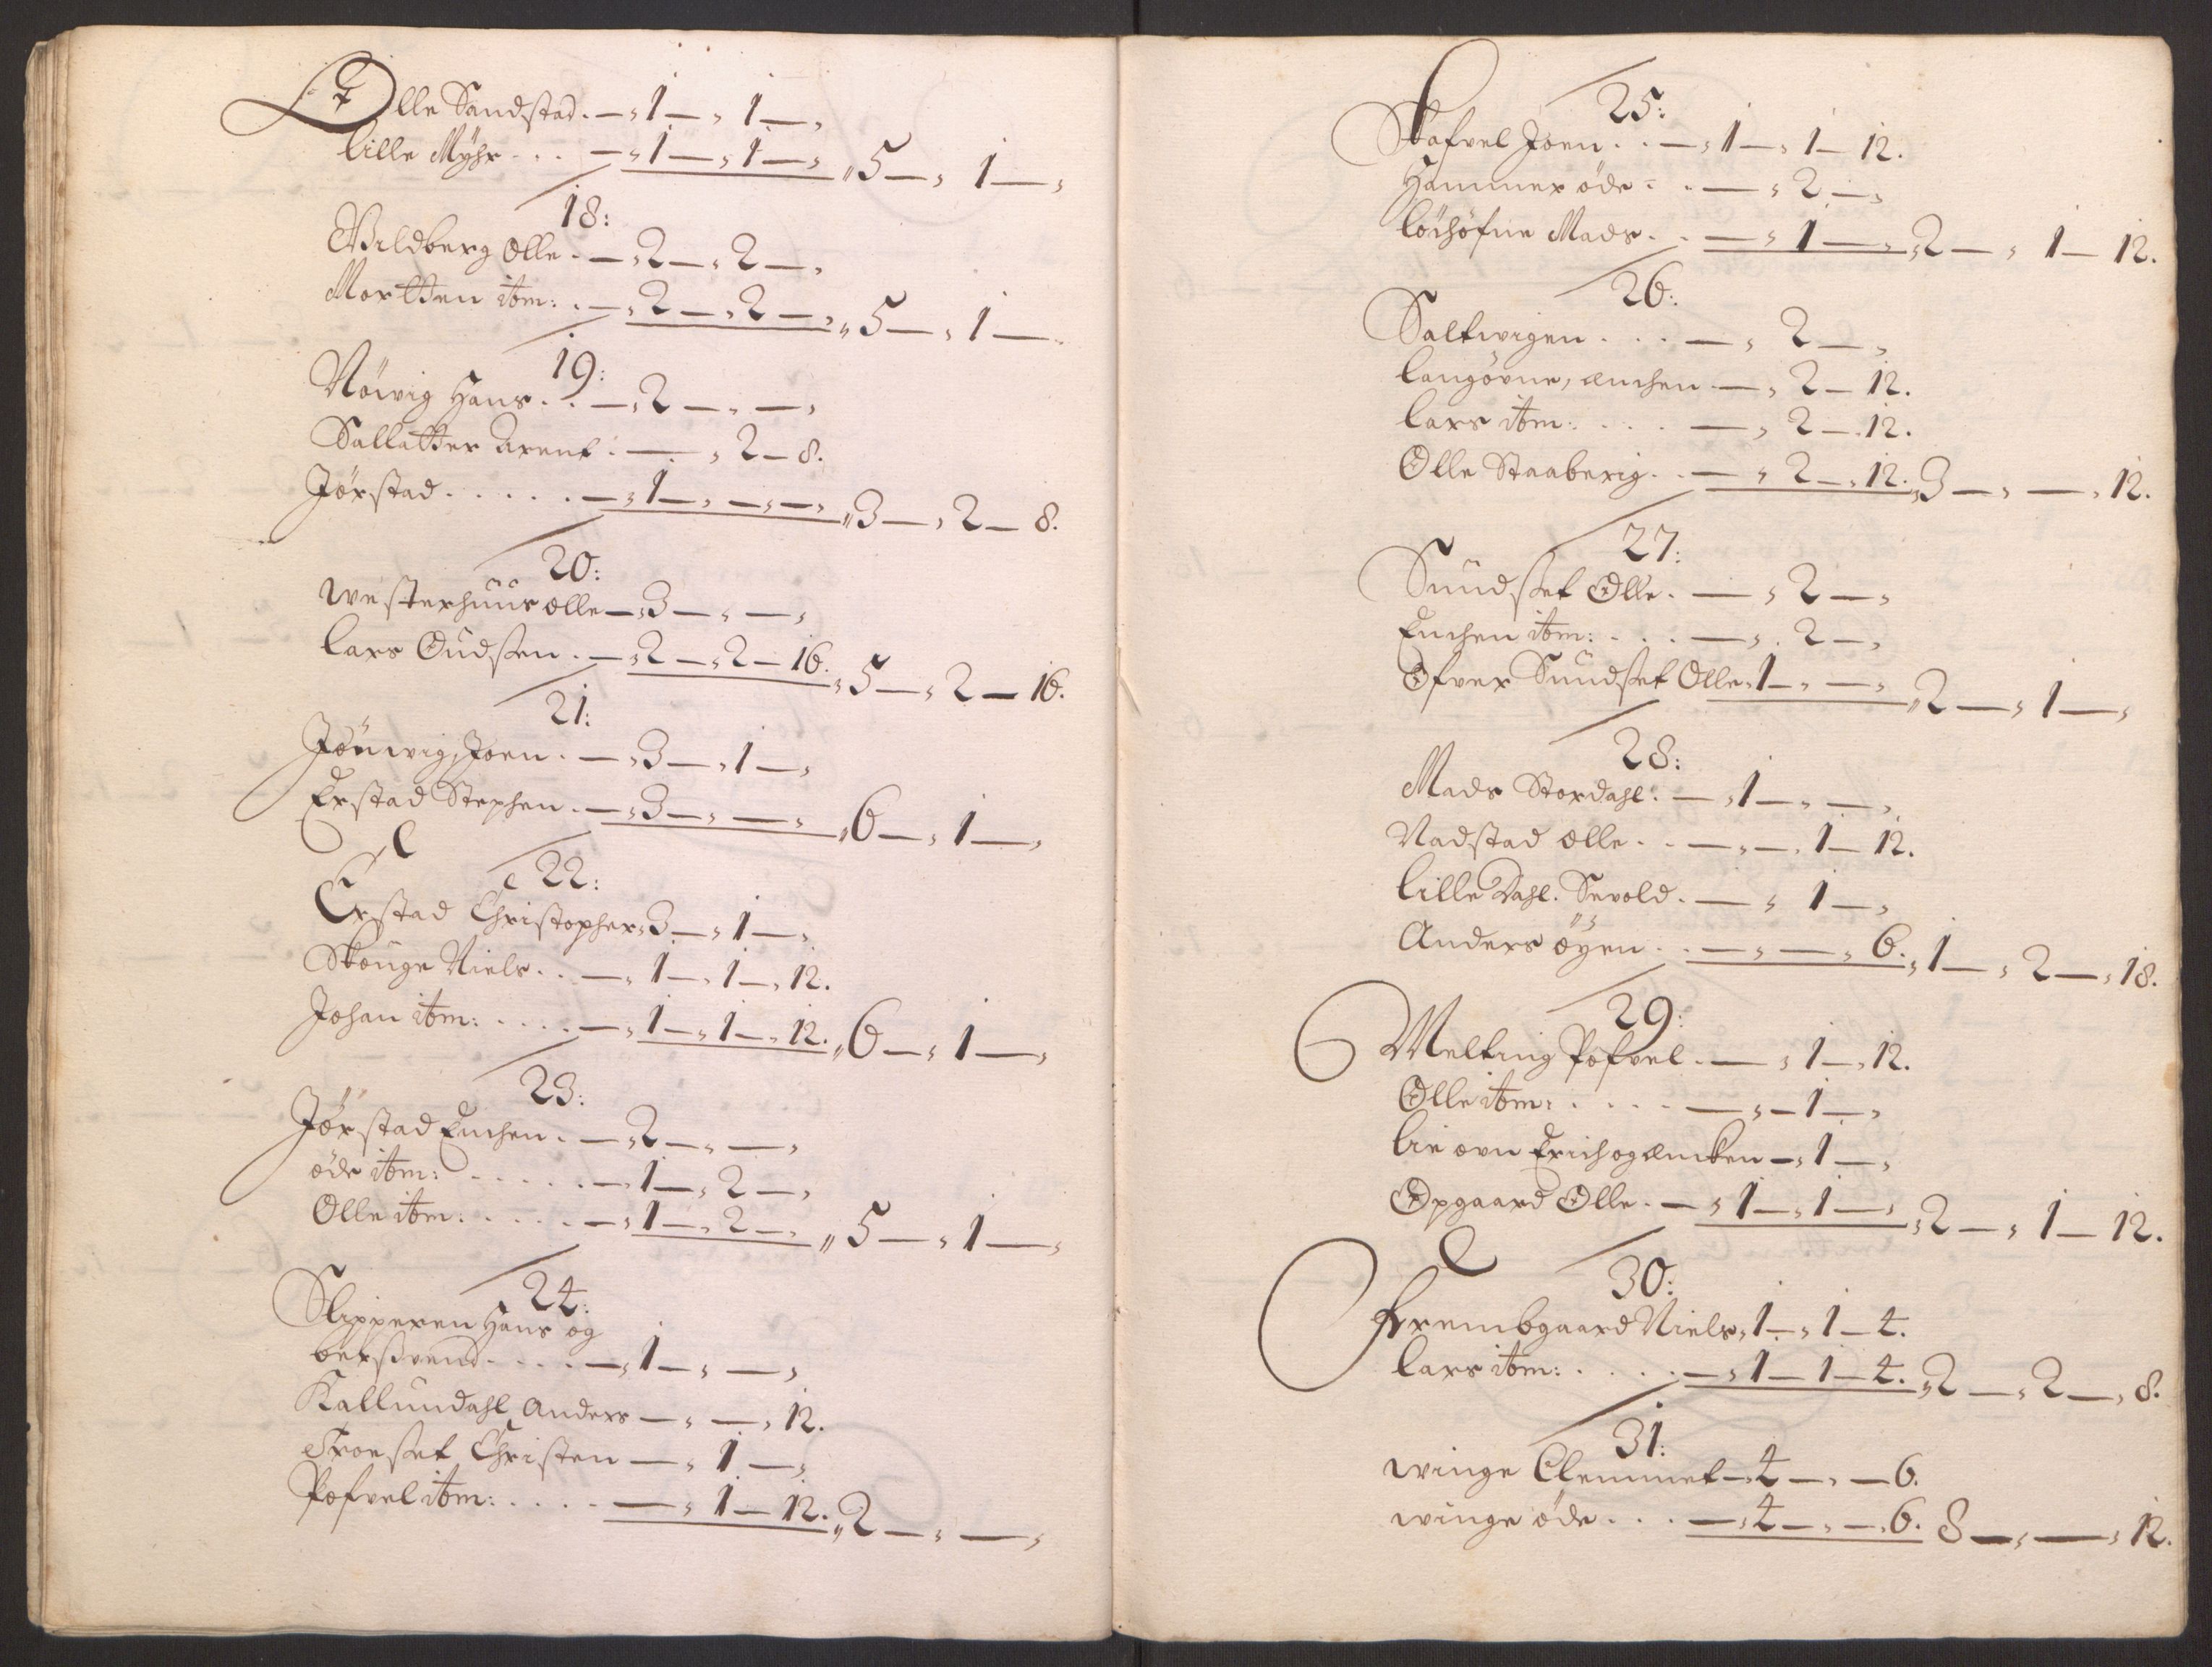 Olle Sandstad. — „ 1 — „ 1 — „
lille Myhr . . . — „ 1 — „ 1 — „ „ 5 — „ 1 — „
18:
Wildberg Olle . — „ 2 — „ 2 — „
Mortten itm: . — „ 2 — „ 2 — „ „ 5 — „ 1 —
19:
Nöwig Hans . . — „ 2 — „ — „
Sallatter Arent : — „ 2 — 8.
Jørstad . . . . . . — „ 1 — „ — „ — „ „ 3 — „ 2 — 8.
20:
westerhuus olle — „ 3 — „ — „
lars Oudsen . — „ 2 — „ 2 — 16. „ 5 — „ 2 — 16.
21:
Jönwig, Joen . — „ 3 — „ 1 — „
Erstad Stephen . — „ 3 — „ — „ „ 6 — „ 1 — „
22:
Erstad Christopher „ 3 — „ 1 — „
Skouge Niels . . — „ 1 — „ 1 — „ 12.
Johan itm: . . . . — „ 1 — „ 1 — „ 12. „ 6 — „ 1 — „
23:
Jørstad Enchen . — „ 2 — „ — „
øde itm: . . . . . — „ 1 — „ 2 — „
Olle itm: . . . . — „ 1 — „ 2 — „ „ 5 — „ 1 — „
24:
Slipperen Hans og
berswend . . . . — „ 1 — „ — „
Kallundahl Anders — „ — „ 12.
Troeset Christen — „ 1 — „
Pofvel itm: . . . . — „ 1 — 12. „ 2 — „ — „
25:
Skafvel Joen . . — „ 1 — „ 1 — 12.
Hammer öde . . — „ 2 — „
Mads . . — „ 1 — „ „ 2 — „ 1 — 12.
26:
Saltwigen . . . . — „ 2 — „
langövne, enchen — „ 2 — 12.
lars itm: . . . . — „ 2 — 12.
Olle Staaberig . . — „ 2 — „ 12. „ 3 — „ — „ 12.
27:
Sundset Olle . — „ 2 — „
Enchen itm: . . . — „ 2 — „
Ofver Sundset Olle „ 1 — „ — „ „ 2 — „ 1 — „
28:
Mads Stordahl . — „ 1 — „ — „
Nadstad olle . . — „ — „ 1 — 12.
lille Dahl. Sevold . — „ 1 — „
Anders öyen . . — „ — „ 6. „ 1 — „ 2 — „ 18.
29:
Melting Pofvel . — „ 1 — „ 12.
Olle itm: . . . . — „ — 1 — „
lie ovn Erich og Encken — „ 1 — „
Opgaard Olle . — „ 1 — „ 1 — „ „ 2 — „ 1 — 12.
30:
Frembgaard Niels „ 1 — „ 1 — 4.
lars itm: . . . . — „ 1 — 1 — 4. „ 2 — „ 2 — „ 8.
31:
winge Clemmet — 4 — „ — 6.
winge öde . . . — „ 4 — „ — „ 6. 8 — „ — „ 12.